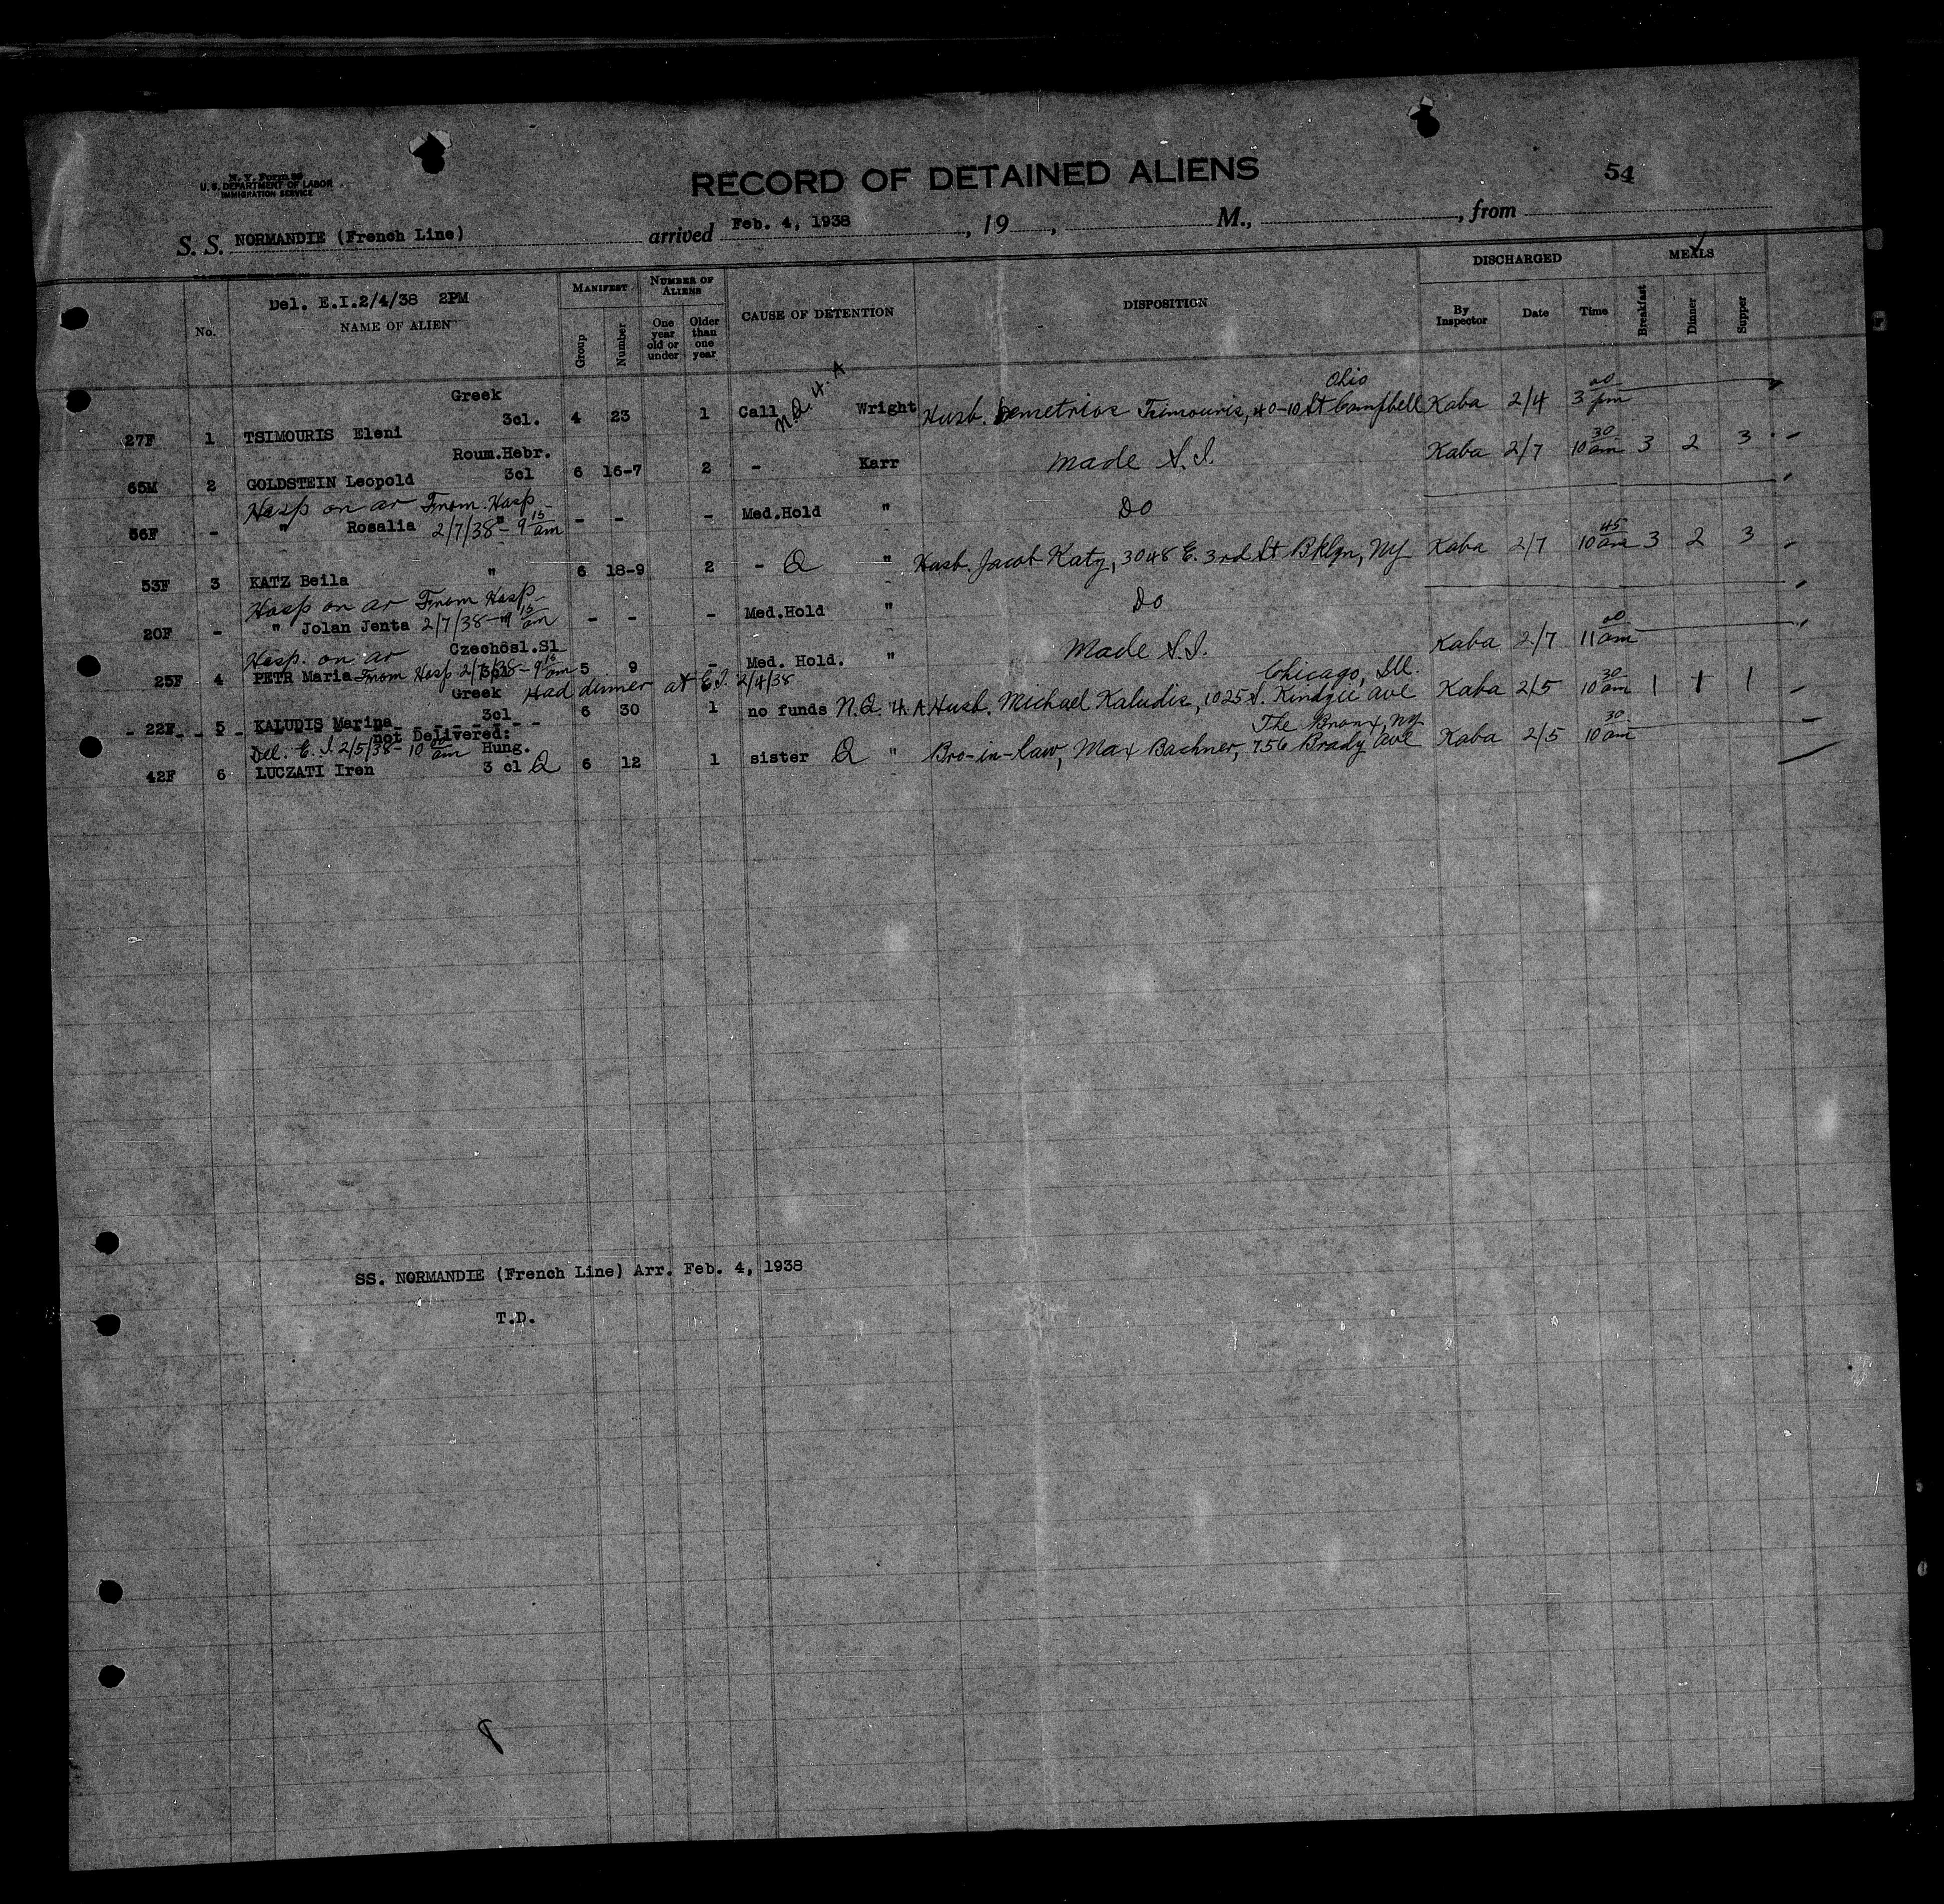 N. Y. Form 99
U. S. DEPARTMENT OF LABOR
IMMIGRATION SERVICE
RECORD OF DETAINED ALIENS
54
S. S. NORMANDIE (French Line) arrived Feb. 4, 1938, 19 , M., , from
Del. E.I.2/4/38 2PM
No. NAME OF ALIEN MANIFEST Group Number NUMBER OF ALIENS One year old or under Older than one year CAUSE OF DETENTION DISPOSITION DISCHARGED By Inspector Date Time MEALS Breakfast Dinner Supper
Greek N.Q. 4. A Ohio
27F 1 TSIMOURIS Eleni 3cl. 4 23 1 Call Wright Husb. Demetrios Tsimouris, 40-10 St Campbell Kaba 2/4 3 00 pm
Roum.Hebr.
65M 2 GOLDSTEIN Leopold 3cl 6 16-7 2 - Karr made S.I. Kaba 2/7 10 30 am 3 2 3
Hosp on ar From Hosp
56F - " Rosalia 2/7/38 - 9 15 am " - - - Med.Hold " Do
53F 3 KATZ Beila " 6 18-9 2 - Q " Husb. Jacob Katz, 3048 E. 3rd St Bklyn, NY Kaba 2/7 10 45 am 3 2 3
Hosp on ar From Hosp
20F - " Jolan Jenta 2/7/38 - 9 15 am " - - - Med.Hold " Do
Hosp. on ar Czechosl.Sl
25F 4 PETR Maria From Hosp 2/7/38 - 9 15 am 3cl 5 9 - Med. Hold. " Made S.I. Kaba 2/7 11 00 am
Greek Had dinner at E.I. 2/4/38 Chicago, Ill.
22F 5 KALUDIS Marina 3cl 6 30 1 no funds N.Q. 4. A Husb. Michael Kaludis, 1025 S. Kindzie Ave Kaba 2/5 10 30 am 1 1 1
not Delivered:
Del. E. I. 2/5/38 - 10 00 am Hung. The Bronx, NY
42F 6 LUCZATI Iren 3 cl Q 6 12 1 sister Q " Bro-in-law, Max Bachner, 756 Brady Ave Kaba 2/5 10 30 am
SS. NORMANDIE (French Line) Arr. Feb. 4, 1938
T.D.